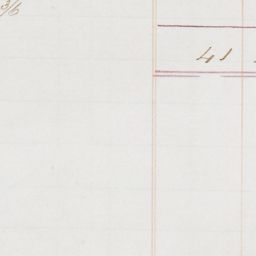 3/6
41